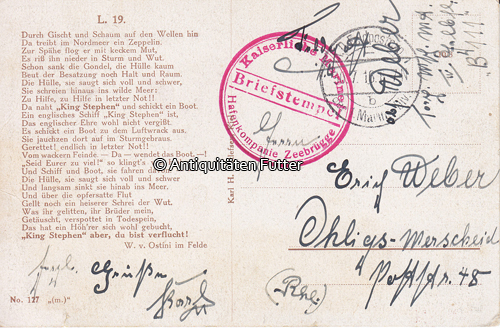 L. 19.
Durch Gischt und Schaum auf den Wellen hin
Da treibt im Nordmeer ein Zeppelin.
Zur Spähe flog er mit keckem Mut,
Es riß ihn nieder in Sturm und Wut.
Schon sank die Gondel, die Hülle kaum
Beut der Besatzung noch Halt und Raum.
Die Hülle, sie saugt sich voll und schwer,
Sie schreien hinaus ins wilde Meer:
Zu Hilfe, zu Hilfe in letzter Not!!
Da naht „King Stephen“ und schickt ein Boot.
Ein englisches Schiff „King Stephen“ ist,
Das englischer Ehre wohl nicht vergißt.
Es schickt ein Boot zu dem Luftwrack aus,
Sie jauchzen dort auf im Sturmgebraus.
Gerettet! endlich in letzter Not!!
Vom wacken Feinde — Da — wendet das Boot.—!
„Seid Eurer zu viel!“ so klingt's
Und Schiff und Boot, sie fahren
Die Hülle, sie saugt sich voll und schwer
Und langsam sinkt sie hinab ins Meer.
Und über die opfersatte Flut
Gellt noch ein heiserer Schrei der Wut.
Was ihr gelitten, ihr Brüder mein,
Getäuscht, verspottet in Todespein,
Das hat ein Höh'rer sich wohl gebucht,
„King Stephen“ aber, du bist verflucht!
W. v. Ostini im Felde
No. 127 „(m.)“
Karl H.
Kaiserliche Marine
Briefstempel
Hafenkompanie Zeebrügge
© Antiquitäten Futter
Herrn
Erich Weber
Ohligs-Merscheid
Poststr. 48
(Rhl.)
Grüße
Karl